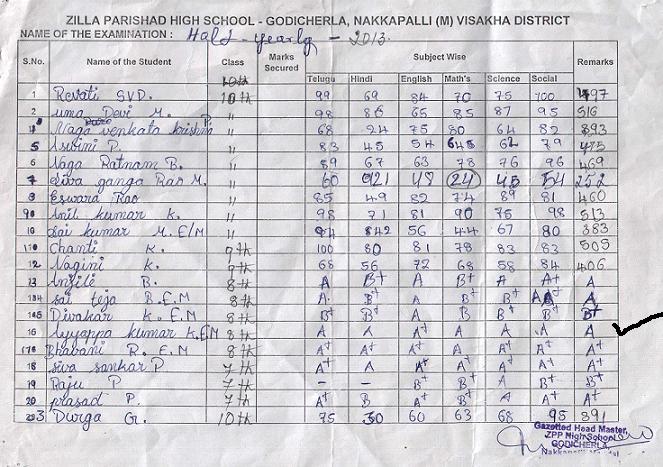 ZILLA PARISHAD HIGH SCHOOL - GODICHERLA, NAKKAPALLI (M) VISAKHA DISTRICT
NAME OF THE EXAMINATION : Half-yearly - 2013.
S.No. Name of the Student Class Marks Secured Subject Wise Remarks
Telugu Hindi English Math's Science Social
1 Revati S.V.D. 10th 99 69 84 70 75 100 497
2 uma Devi M. " 98 86 65 85 87 95 516
Naga venkata krishna P. " 68 24 75 80 64 82 393
5 Asvini P. " 83 45 54 62 79
6 Naga Ratnam B. " 89 67 63 78 76 96 469
7 Siva ganga Rao M. " 60 21 48 24 45 54 252
8 Eswara Rao " 85 49 82 74 89 81 460
9 Anil kumar K. " 98 71 81 90 75 98 513
10 Sai kumar M. E/M " 94 42 56 44 67 80 383
11 Chanti K. 9th 100 80 81 78 83 83 505
12 Nagini K. 9th 68 56 72 68 58 84 406
13 Anjili B. 8th A B+ A B+ A A+ A
14 Sai teja B.E.M 8th A B+ A B+ B+ A A
15 Divakar K. E.M 8th B+ B+ B A B+ B+ B+
16 Ayyappa kumar K.E/M 8th A A A+ A A A A
17 Bhavani R. E.M 8th A+ A+ A+ A A+ A+ A+
18 Siva sankar P 7th A+ A A+ A+ A+ A+ A+
19 Raju P 7th - - B+ B+ A B+ B+
20 prasad P. 7th A+ B A A+ A A+ A+
Durga G. 10th 75 30 60 63 68 95 391
Gazetted Head Master,
ZPP High School
GODICHERLA,
Nakkapalli Mandal